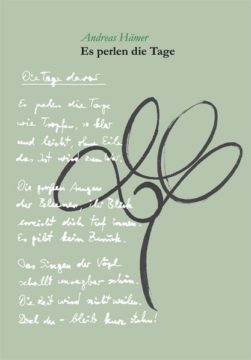 Andreas Hämer
Es perlen die Tage
Die Tage davor
Es perlen die Tage
wie Tropfen, so klar
und leicht, ohne Eile
das ist wird zum
Die großen Augen
der Blumen, ihr Blick
erreicht dich tief innen.
Es gibt kein Zurück.
Das Singen der Vögel
schallt unsagbar schön.
Die Zeit wird nicht weilen.
Doch du – bleib kurz stehn!